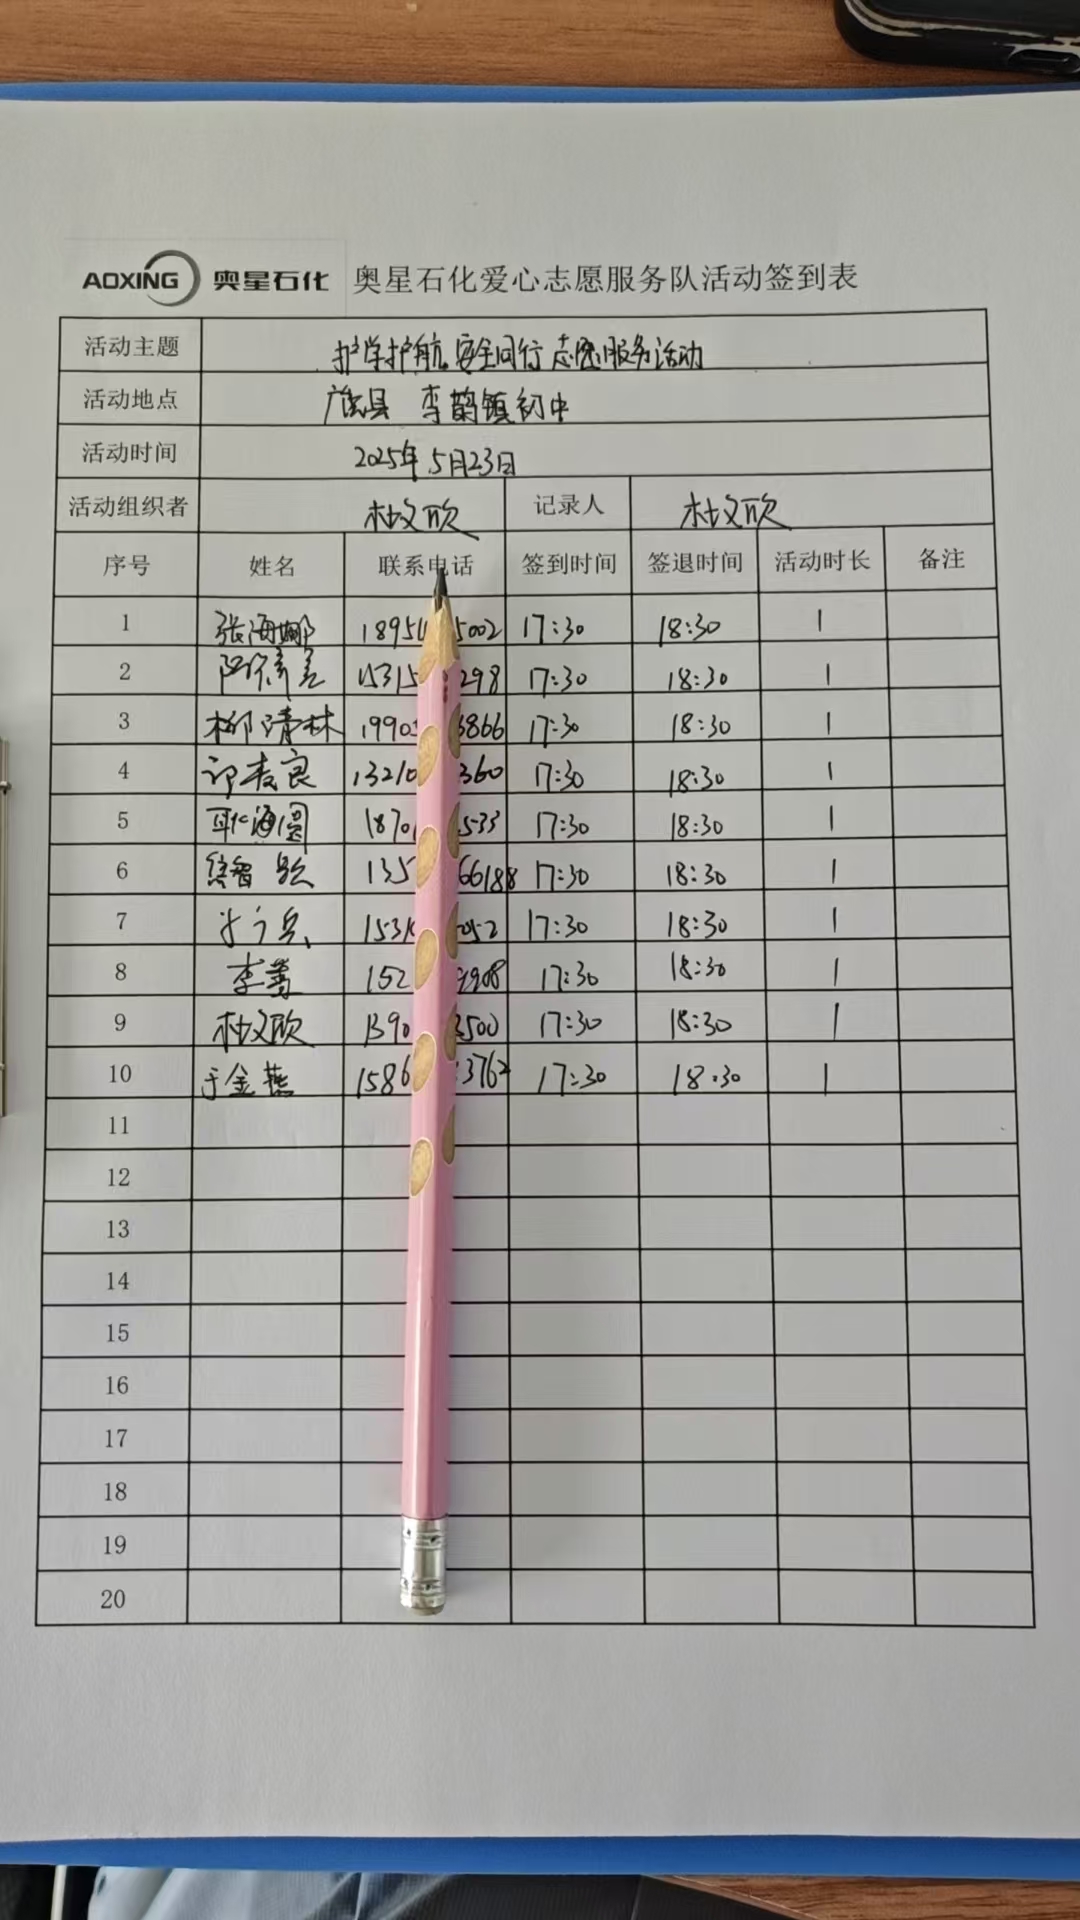 AOXING 奥星石化 奥星石化爱心志愿服务队活动签到表
活动主题 护学护航 安全同行 志愿服务活动
活动地点 县 李鹊镇初中
活动时间 2025年5月23日
活动组织者 杜文欣 记录人 杜文欣
序号 姓名 联系电话 签到时间 签退时间 活动时长 备注
1 张海娜 1895 5002 17:30 18:30 1
2 15315 298 17:30 18:30 1
3 柳清林 1990 3866 17:30 18:30 1
4 13210 360 17:30 18:30 1
5 耿海圆 1870 533 17:30 18:30 1
6 135 66188 17:30 18:30 1
7 1531 052 17:30 18:30 1
8 李菁 152 9908 17:30 18:30 1
9 杜文欣 1390 3500 17:30 18:30 1
10 于金燕 1586 3762 17:30 18:30 1
11
12
13
14
15
16
17
18
19
20